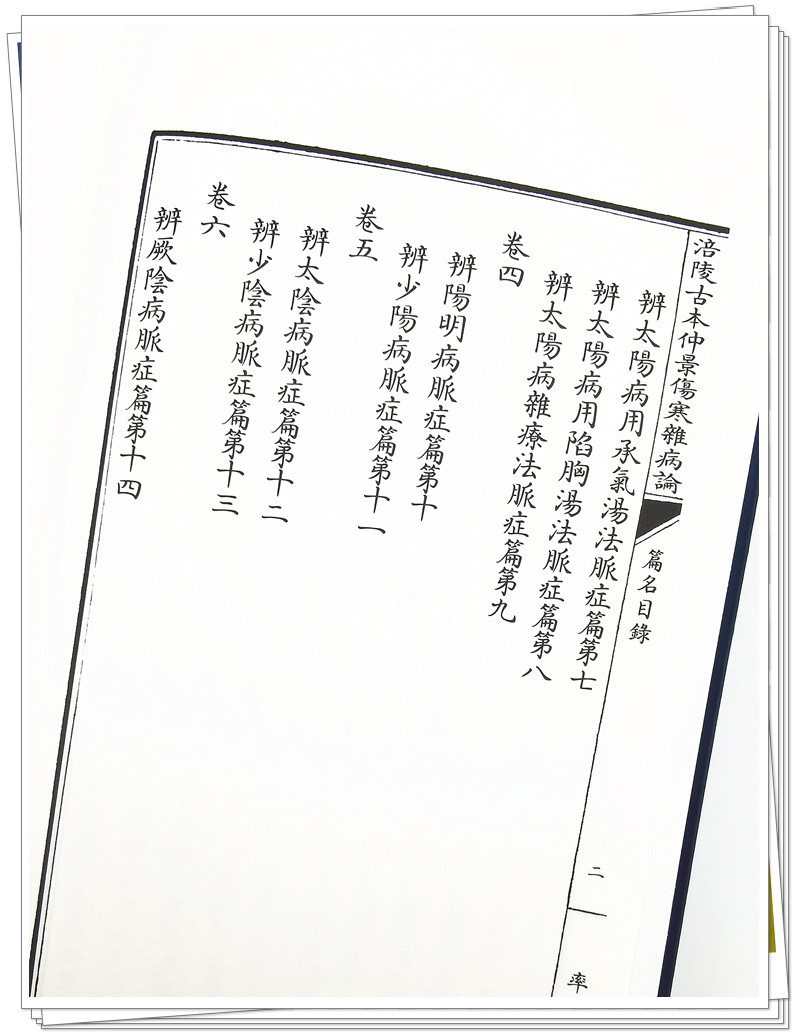 涪陵古本仲景傷寒雜病論
篇名目錄
二
率
辨太陽病用承氣湯法脈症篇第七
辨太陽病用陷胸湯法脈症篇第八
辨太陽病雜療法脈症篇第九
卷四
辨陽明病脈症篇第十
辨少陽病脈症篇第十一
卷五
辨太陰病脈症篇第十二
辨少陰病脈症篇第十三
卷六
辨厥陰病脈症篇第十四